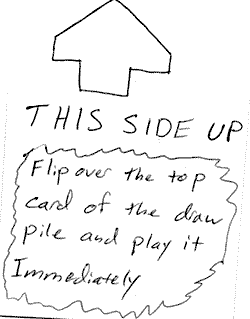 THIS SIDE UP
Flip over the top
card of the draw
pile and play it
Immediately